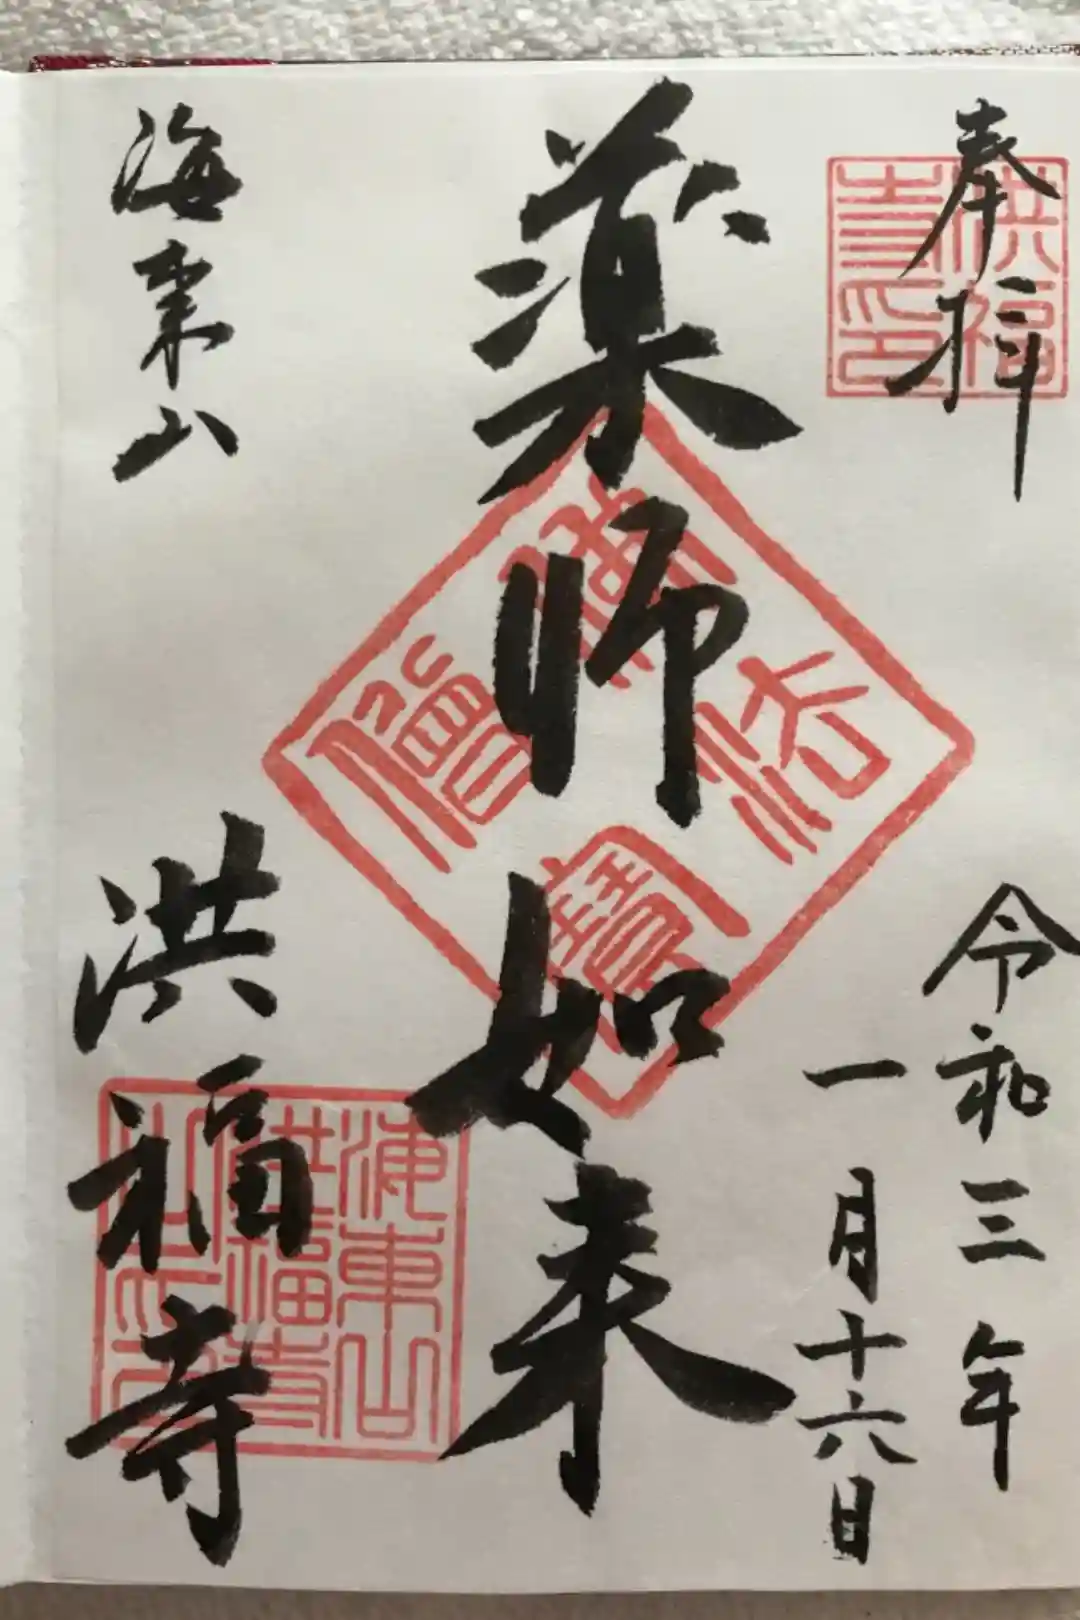 奉拝
洪福
寺印
令和三年
一月十六日
薬師如来
佛法僧寳
海東山
洪福寺
海東山
洪福寺
之印